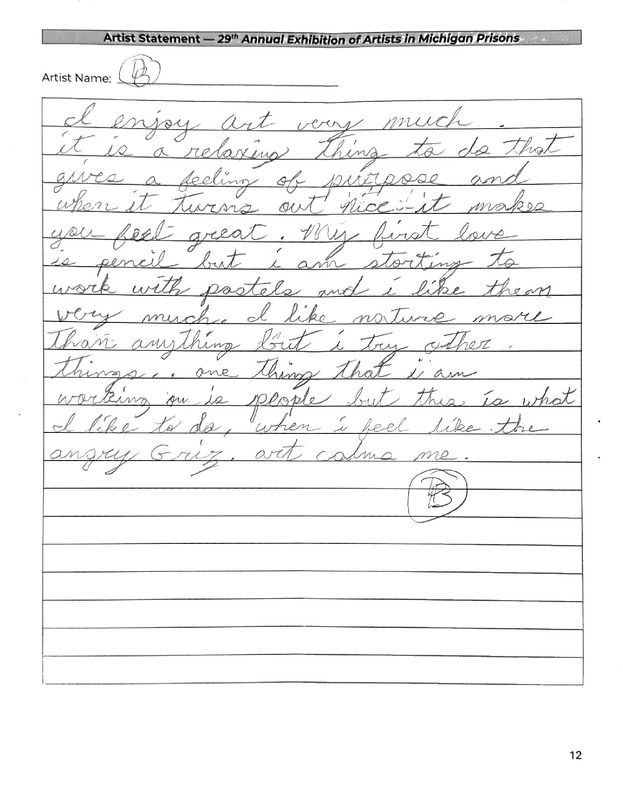 Artist Statement — 29th Annual Exhibition of Artists in Michigan Prisons
Artist Name: DB
I enjoy art very much.
it is a relaxing thing to do that
gives a feeling of purpose and
when it turns out nice it makes
you feel great. My first love
is pencil but i am storting to
work with pastels and i like them
very much. I like nature more
than anything but i try other
things.. one thing that i am
working on is people but this is what
I like to do, when i feel like the
angry Griz. art calms me.
DB
12